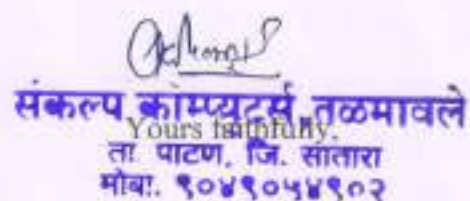 संकल्प कॉम्प्युटर्स, तळमावले
Yours faithfully,
ता. पाटण, जि. सातारा
मोबा. ९०४९०५४९०२